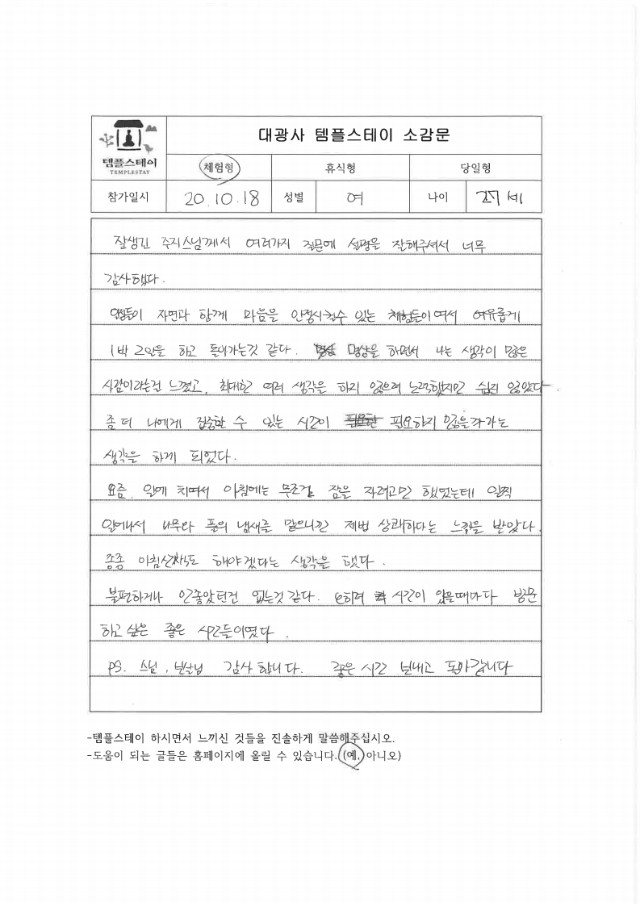 템플스테이
TEMPLESTAY
대광사 템플스테이 소감문
체험형 휴식형 당일형
참가일시 20.10.18 성별 여 나이 세
잘생긴 주지스님께서 여러가지 질문에 설명을 잘해주셔서 너무
감사했다.
자연과 함께 마음을 안정시킬수 있는 체험들이여서 여유롭게
1박 2일을 하고 돌아가는것 같다. 명상을 하면서 나는 생각이 많은
사람이라는걸 느꼈고, 최대한 여러 생각은 하지 않으려 노력했지만 쉽지 않았다
좀 더 나에게 집중할 수 있는 시간이 필요하지 않을까라는
생각을 하게 되었다.
요즘 일에 치여서 아침에는 무조건 잠을 자려고만 했었는데 일찍
일어나서 나무와 풀의 냄새를 맡으니깐 제법 상쾌하다는 느낌을 받았다.
종종 아침산책도 해야겠다는 생각을 했다.
불편하거나 안좋았던건 없는것 같다. 오히려 시간이 있을때마다 방문
하고 싶은 좋은 시간들이였다.
PS. 스님, 보살님 감사합니다. 좋은 시간 보내고 돌아갑니다
-템플스테이 하시면서 느끼신 것들을 진솔하게 말씀해주십시오.
-도움이 되는 글들은 홈페이지에 올릴 수 있습니다. (예, 아니오)